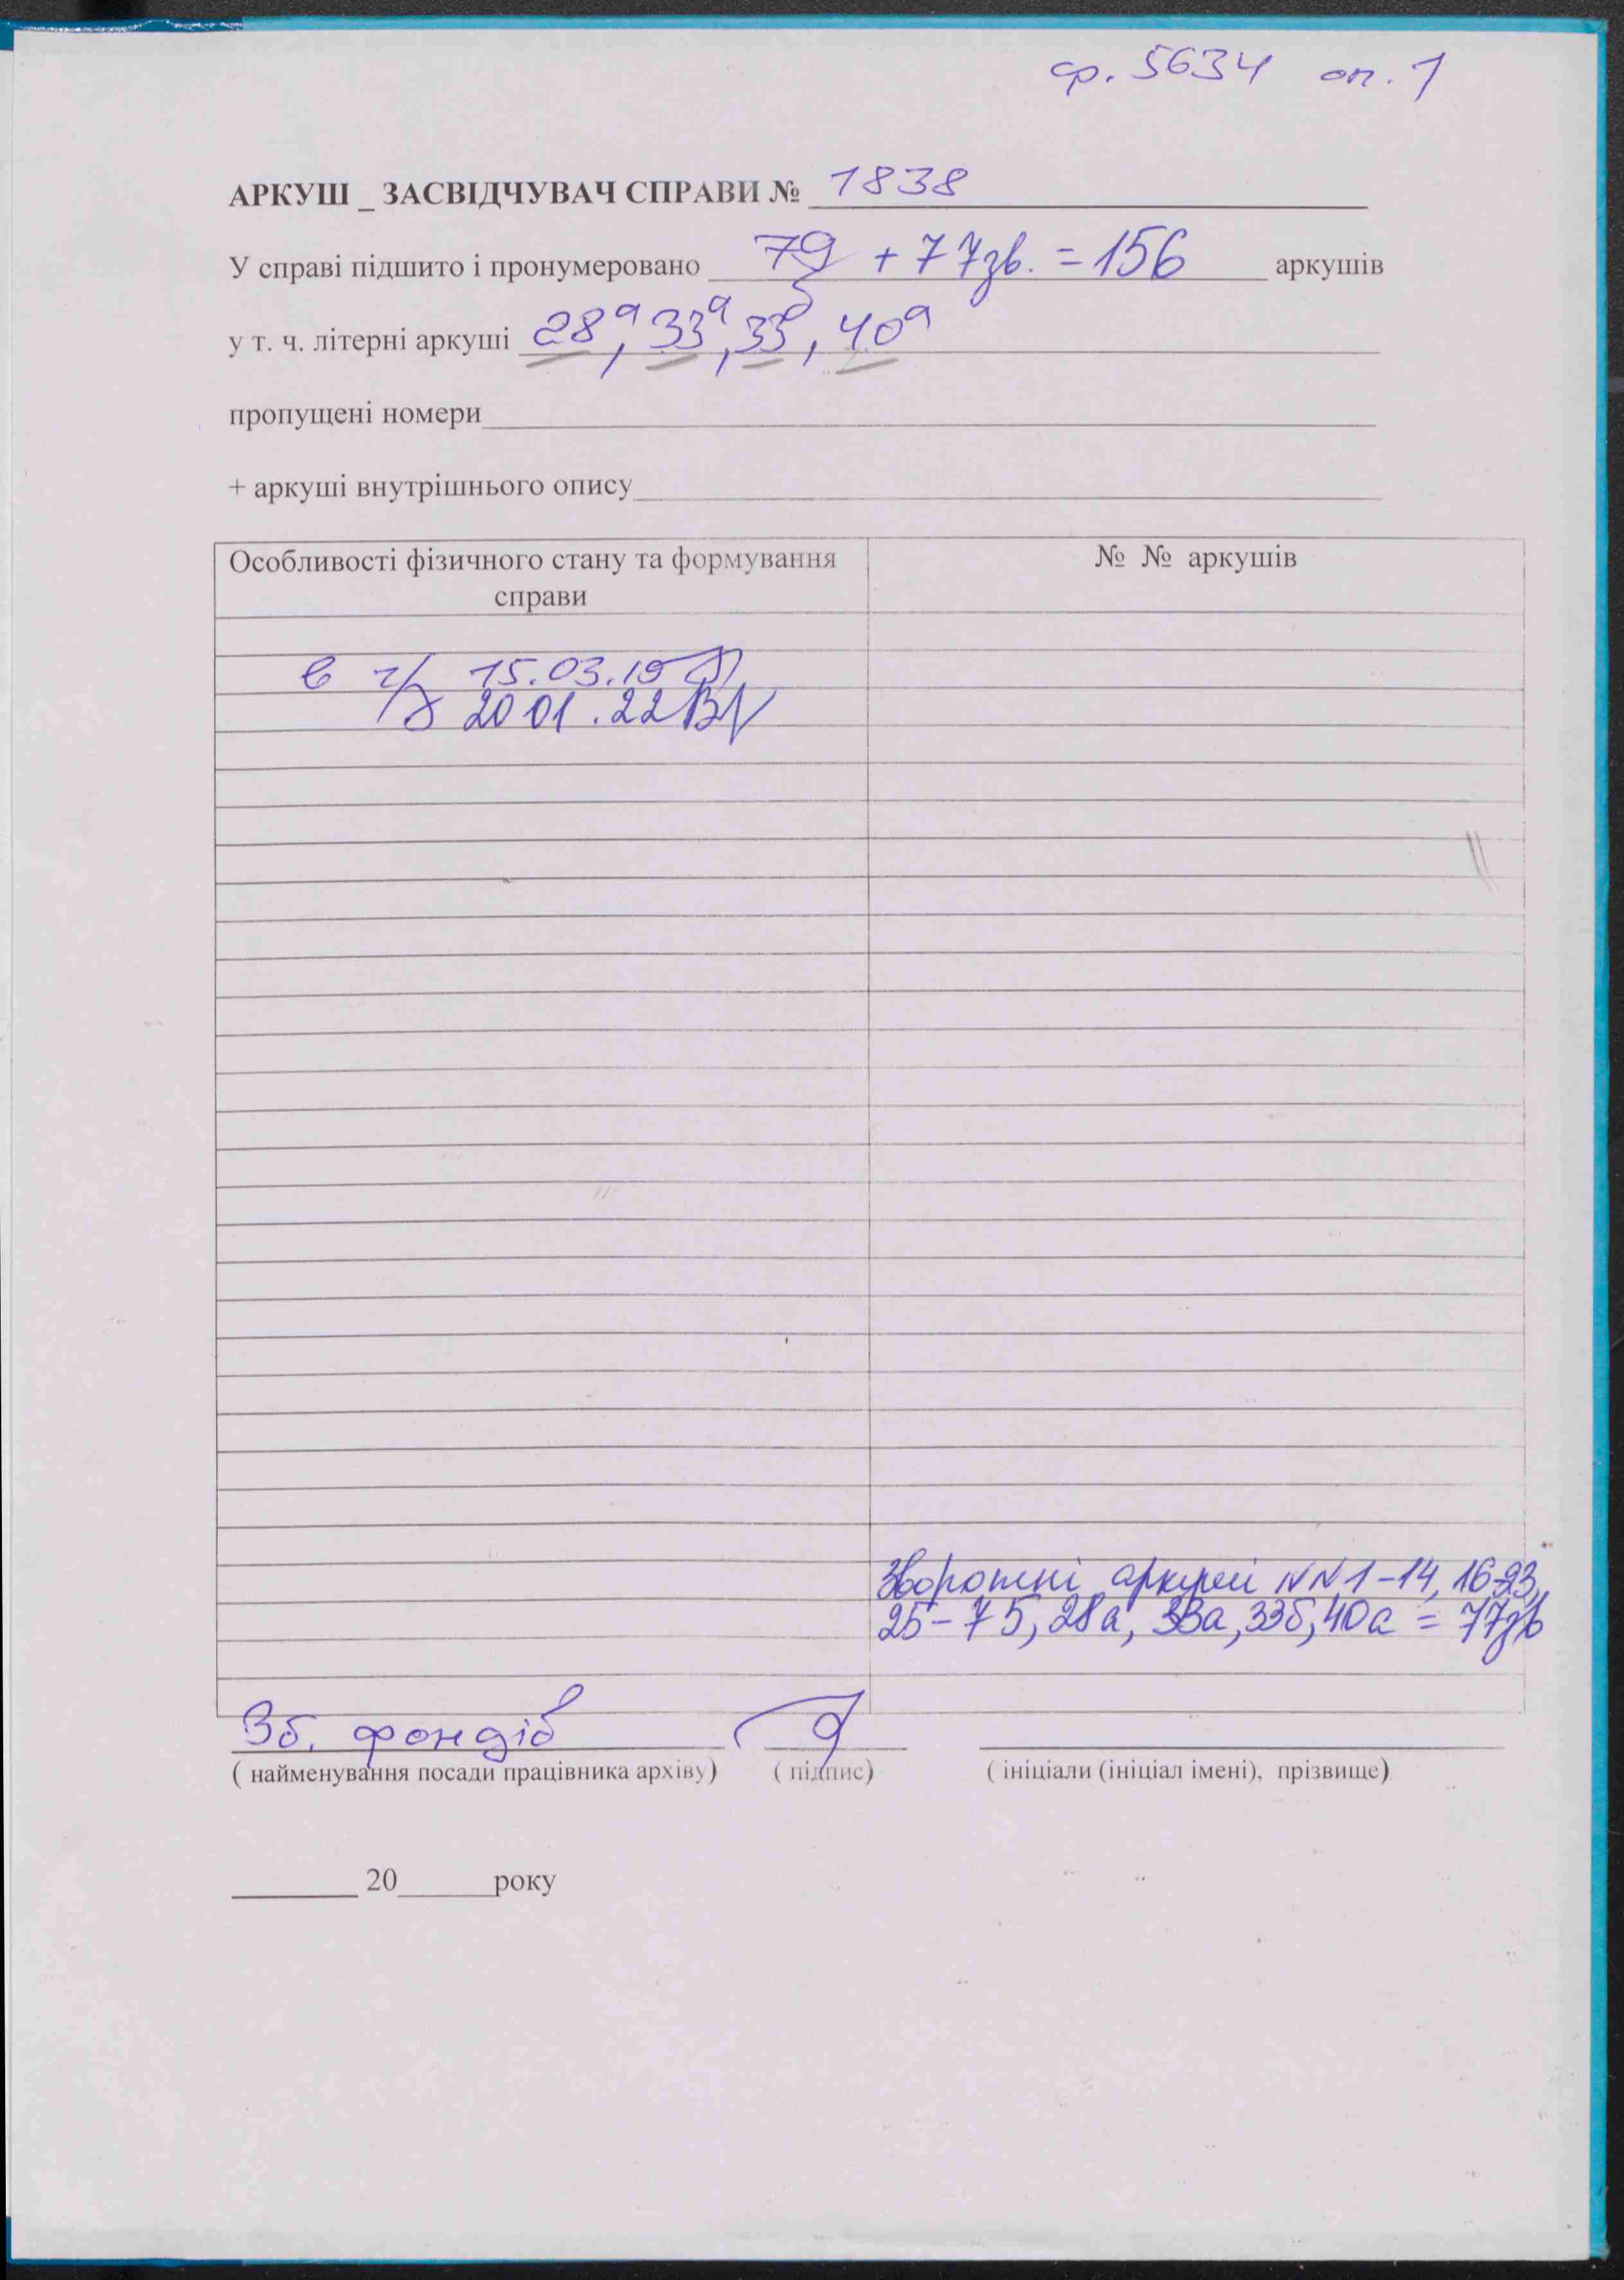 ф. 5634 оп. 1
АРКУШ _ ЗАСВІДЧУВАЧ СПРАВИ № 1838
У справі підшито і пронумеровано 79 + 77зв. = 156 аркушів
у т. ч. літерні аркуші 28а, 33а, 33б, 40а
пропущені номери
+ аркуші внутрішнього опису
Особливості фізичного стану та формування
справи
№ № аркушів
в г/х 15.03.19
г/х 20 01.22
Зворотні аркуші NN 1-14, 16-23,
25-75, 28а, 33а, 33б, 40а = 77зв
Зб. фондів
( найменування посади працівника архіву) ( підпис) ( ініціали (ініціал імені), прізвище)
20 року